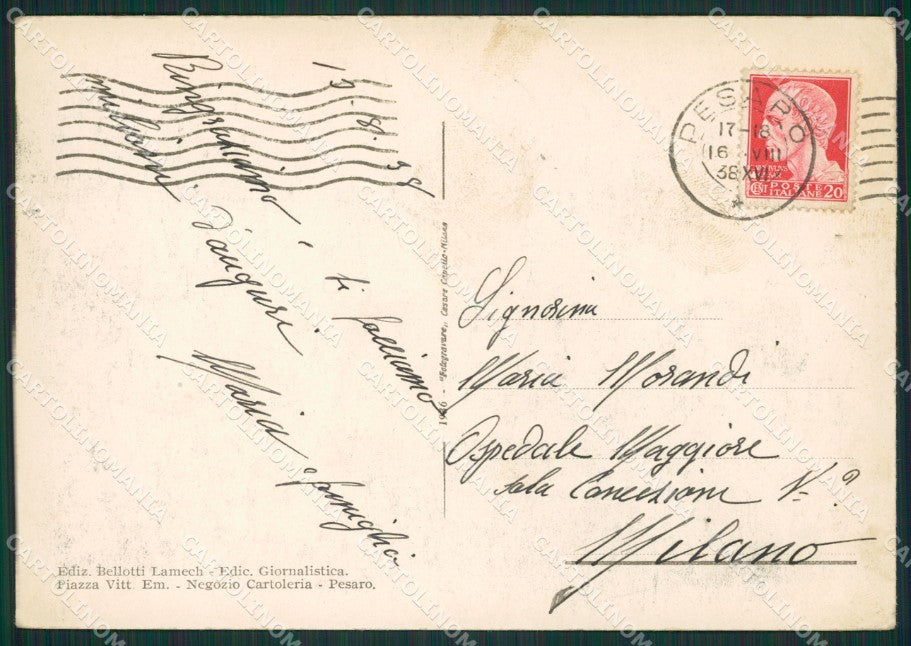 15.8.38
Ringraziamo
ti facciamo
d'auguri
Maria e famiglia
PESARO
17-18
16 VIII
38 XVI
POSTE
ITALIANE
CENT 20
Signorina
Maria Morandi
Ospedale Maggiore
Sala Concezione N.º
Milano
1936 - "Fotogravure" Cesare Capello-Milano
Ediz. Bellotti Lamech - Edic. Giornalistica.
Piazza Vitt. Em. - Negozio Cartoleria - Pesaro.
CARTOLINOMANIA